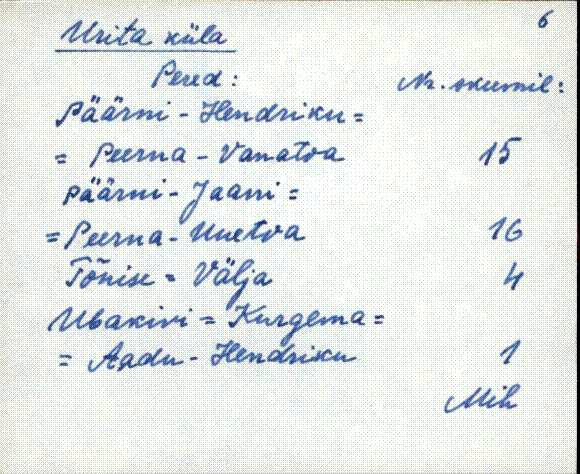 6
Urita küla
Pered: Nr. skeemil:
Päärni-Hendriku=
= Peerna-Vanatoa 15
Päärni-Jaani=
=Peerna-Uuetoa 16
Tõnise = Välja 4
Ubakivi = Kurgema=
= Aadu-Hendriku 1
Mih